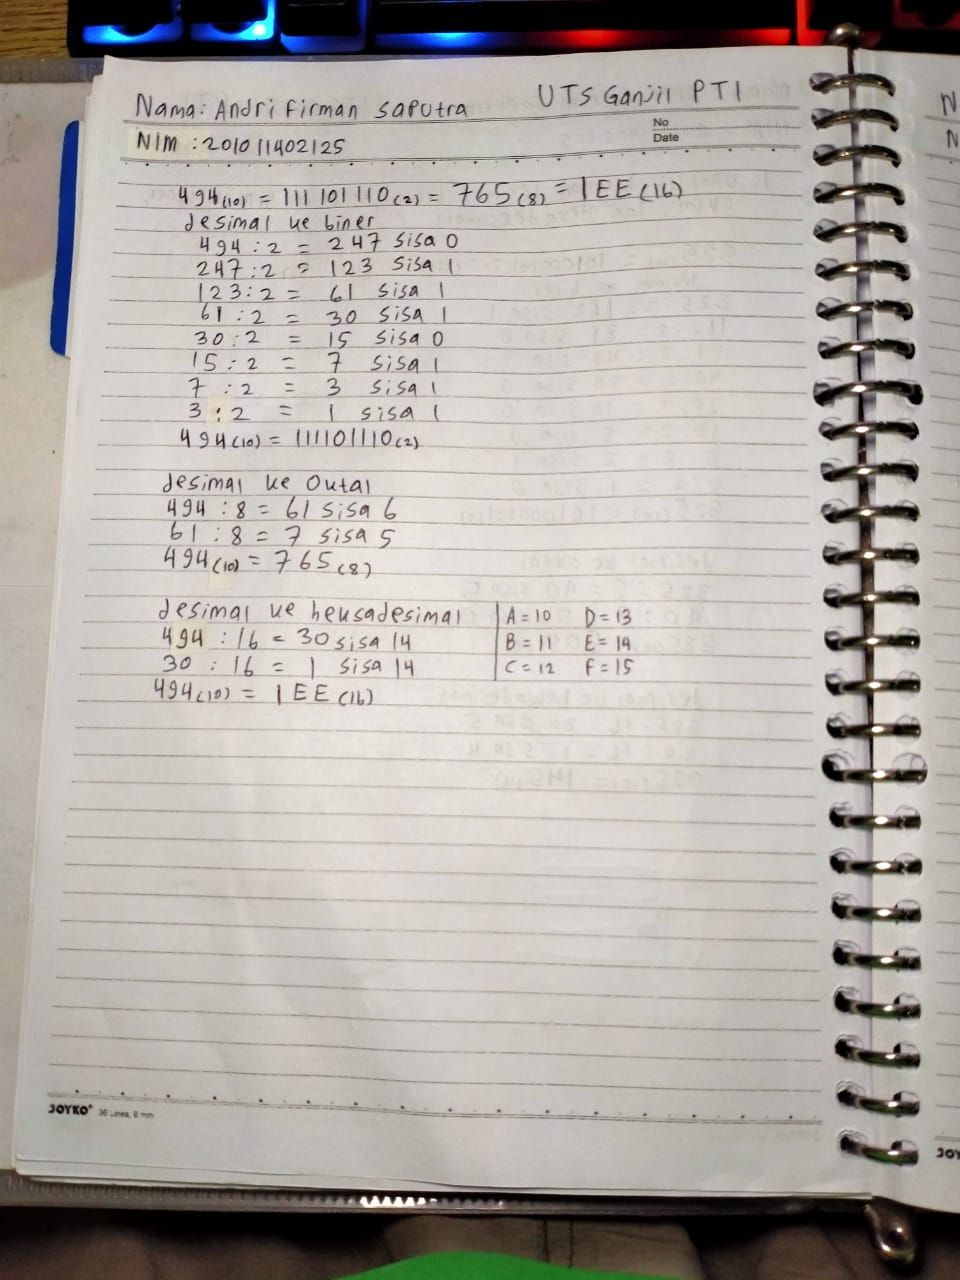 Nama: Andri Firman Saputra UTS Ganjil PTI
NIM : 201011402125
No
Date
494(10) = 111 101 110(2) = 765(8) = 1EE(16)
desimal ke biner
494 : 2 = 247 sisa 0
247 : 2 = 123 sisa 1
123 : 2 = 61 sisa 1
61 : 2 = 30 sisa 1
30 : 2 = 15 sisa 0
15 : 2 = 7 sisa 1
7 : 2 = 3 sisa 1
3 : 2 = 1 sisa 1
494(10) = 111101110(2)
desimal ke Oktal
494 : 8 = 61 sisa 6
61 : 8 = 7 sisa 5
494(10) = 765(8)
desimal ke heksadesimal
494 : 16 = 30 sisa 14
30 : 16 = 1 sisa 14
494(10) = 1EE(16)
A = 10 D = 13
B = 11 E = 14
C = 12 F = 15
JOYKO 36 Lines, 8 mm
N
N
JOY